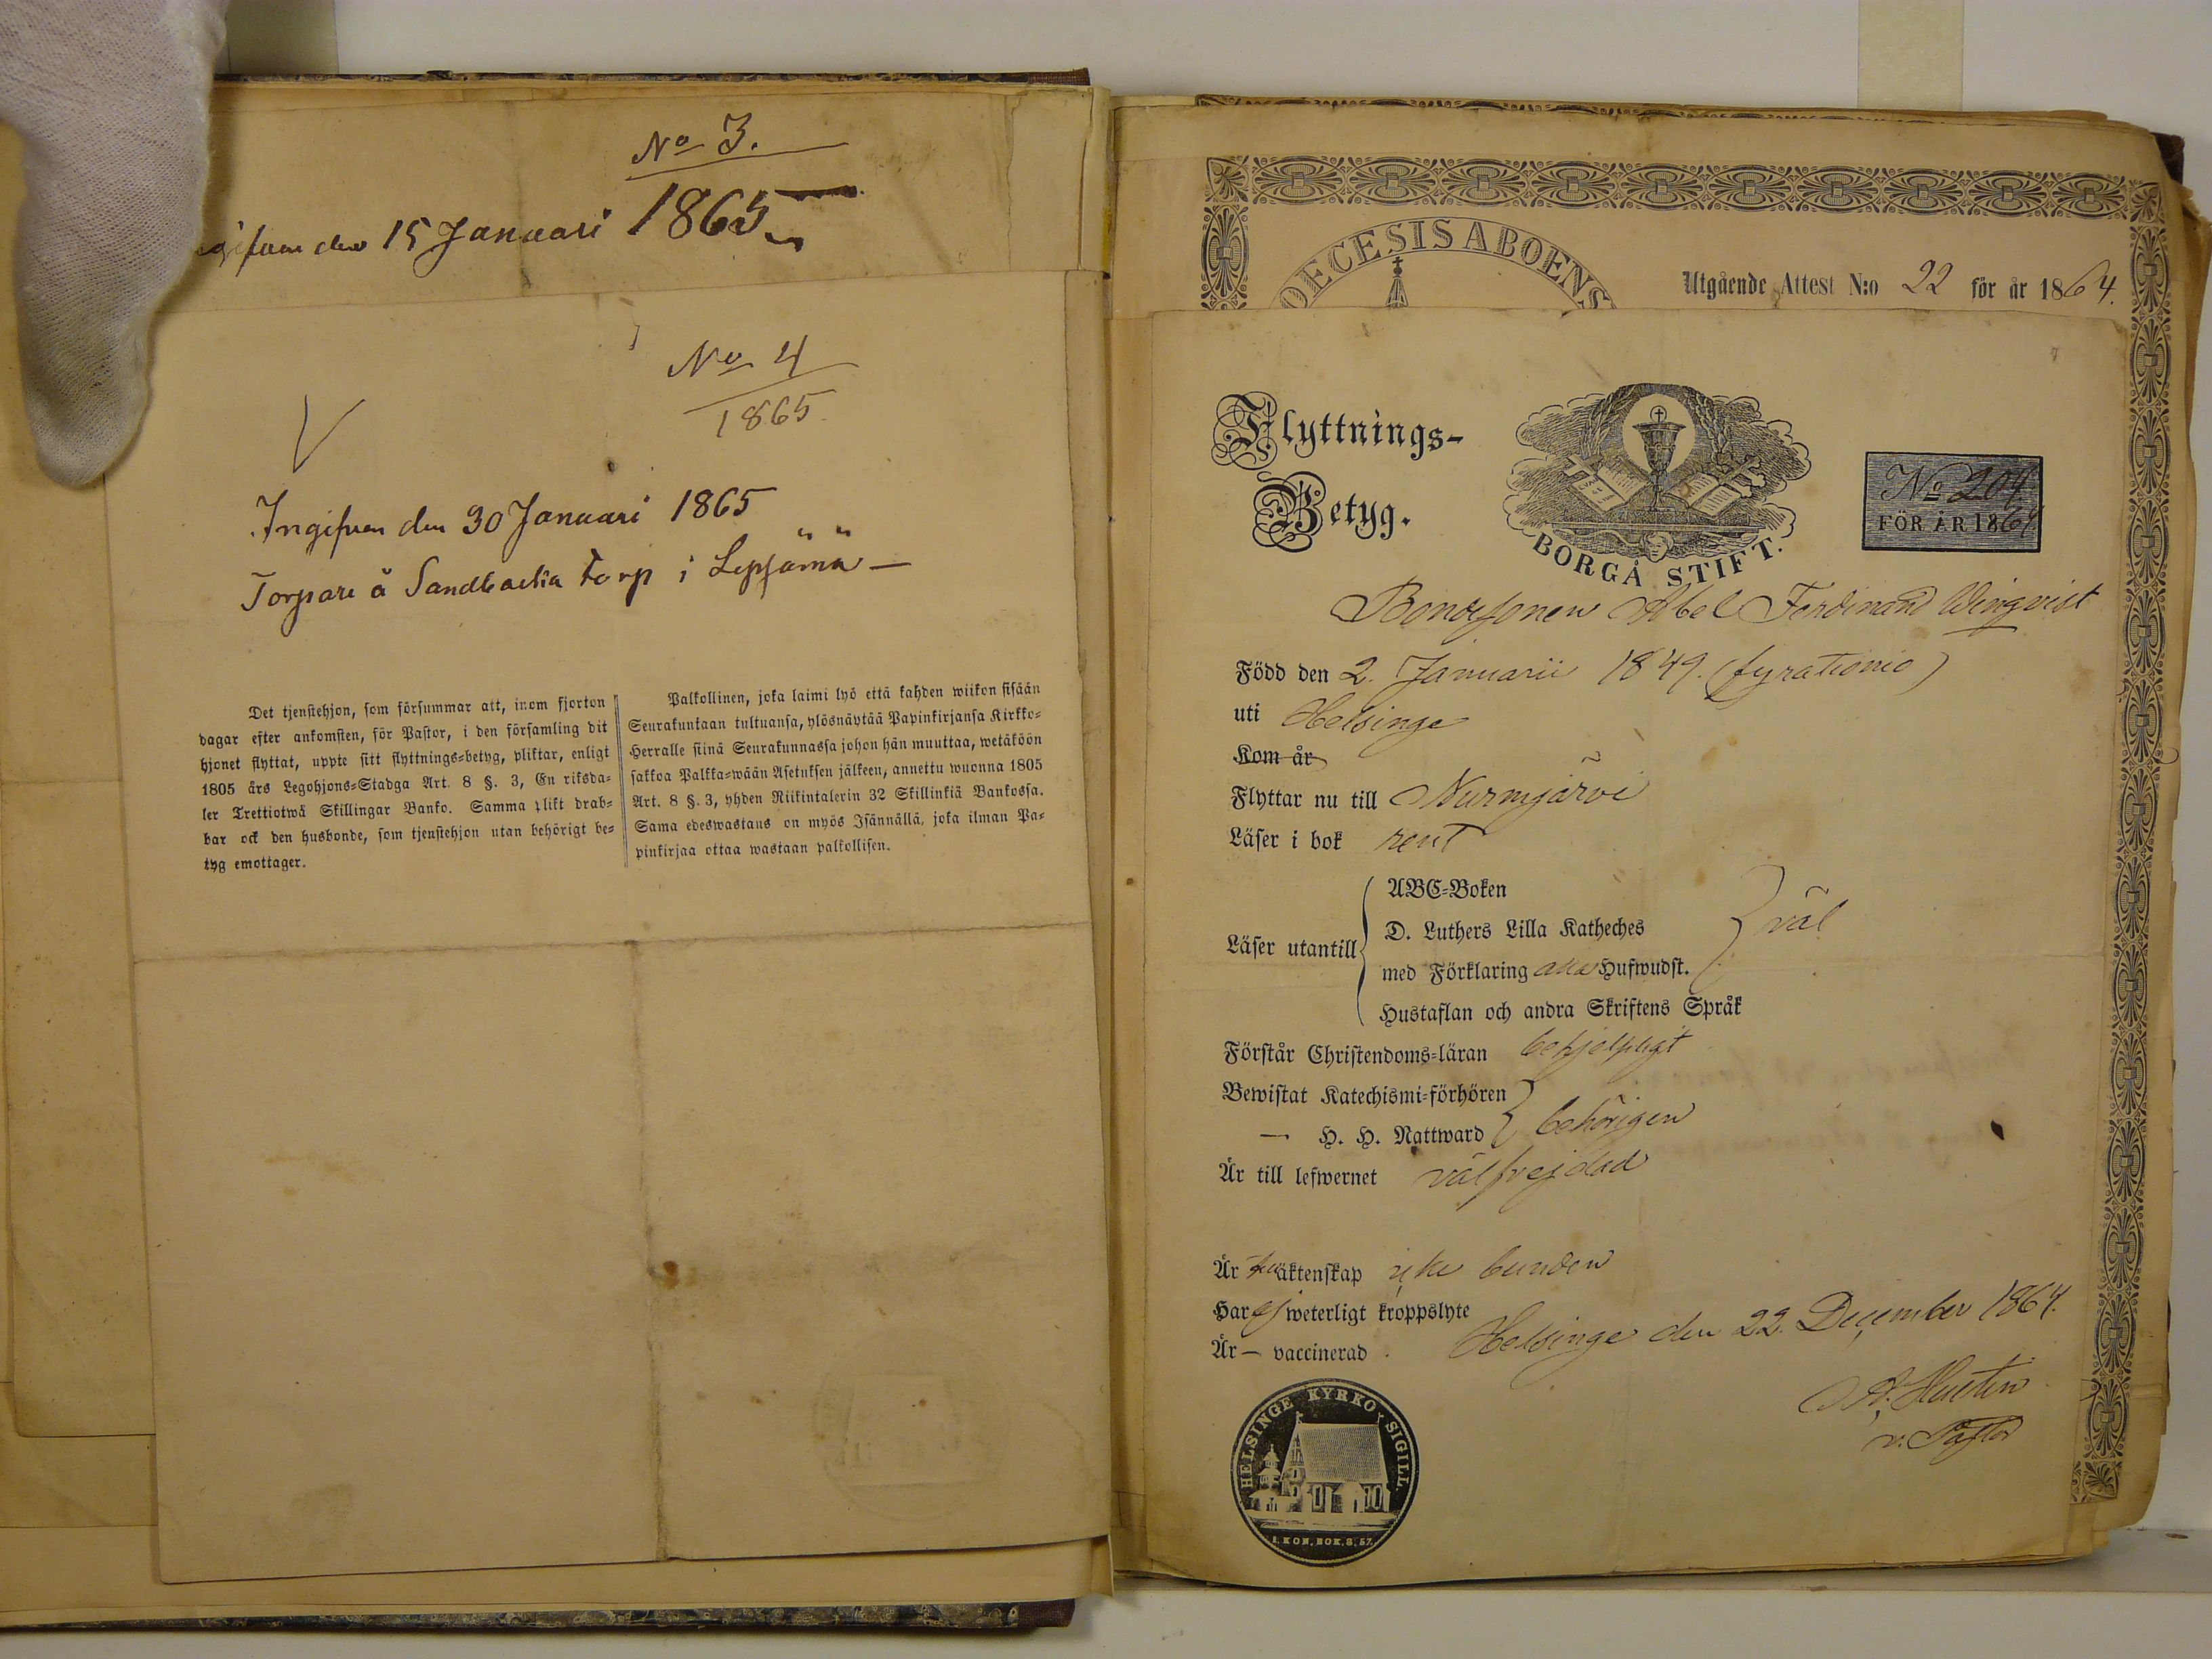 No 3.
1865
Ingifven den 15 Januari
No 4
1865.
Ingifven den 30 Januari 1865
Torpare å Sandbacka torp i Lepsämä —
Det tjenstehjon, som försummar att, inom fjorton
dagar efter ankomsten, för Pastor, i den församling dit
hjonet flyttat, uppte sitt flyttnings=betyg, pliktar, enligt
1805 års Legohjons=Stadga Art. 8 §. 3, En riksda=
ler Trettiotwå Skillingar Banko. Samma plikt drab=
bar ock den husbonde, som tjenstehjon utan behörigt be=
tyg emottager.
Palkollinen, joka laimi lyö että kahden wiikon sisään
Seurakuntaan tultuansa, ylösnäytää Papinkirjansa Kirkko=
Herralle siinä Seurakunnassa johon hän muuttaa, wetäköön
sakkoa Palkka=wään Asetuksen jälkeen, annettu wuonna 1805
Art. 8 §. 3, yhden Riikintalerin 32 Skillinkiä Bankossa.
Sama edeswastaus on myös Isännällä, joka ilman Pa=
pinkirjaa ottaa wastaan palkollisen.
DECESIS ABOENS
Utgående Attest N:o 22 för år 1864.
Flyttnings-
Betyg.
BORGÅ STIFT.
No 204
FÖR ÅR 1864
Bondesonen Abel Ferdinand Wingvist
Född den 2. Januarii 1849. (fyrationio)
uti Helsinge
Kom år
Flyttar nu till Nurmijärvi
Läser i bok rent
Läser utantill
ABC=Boken
D. Luthers Lilla Katheches
med Förklaring alla Hufwudst.
Hustaflan och andra Skriftens Språk
väl
Förstår Christendoms=läran behjelpligt
Bewistat Katechismi=förhören
— H. H. Nattward
behörigen
Är till lefwernet välfrejdad
Är till äktenskap icke bunden
Har ej weterligt kroppslyte
Är — vaccinerad.
Helsinge den 22. December 1864.
v. Pastor
HELSINGE KYRKO SIGILL.
1. KON. BOK. 8, 57.